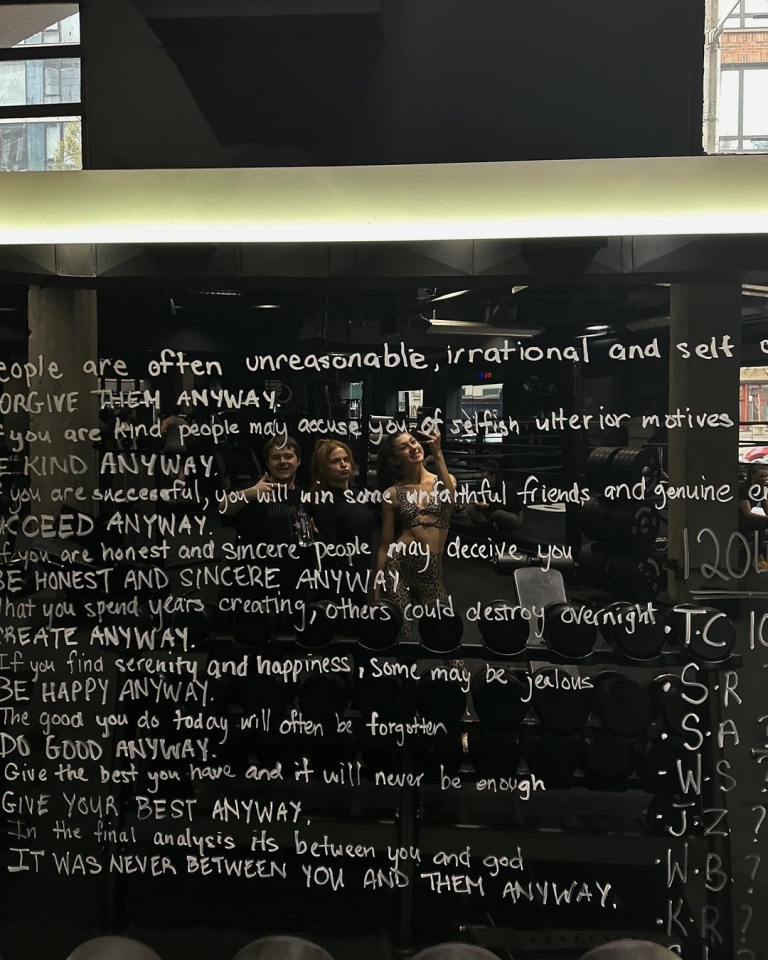 eople are often unreasonable, irrational and self c
ORGIVE THEM ANYWAY.
f you are kind people may accuse you of selfish ulterior motives
E KIND ANYWAY.
f you are successful, you will win some unfaithful friends and genuine en
CCEED ANYWAY.
If you are honest and sincere people may deceive you
BE HONEST AND SINCERE ANYWAY.
hat you spend years creating, others could destroy overnight.
REATE ANYWAY.
If you find serenity and happiness, some may be jealous
BE HAPPY ANYWAY.
The good you do today will often be forgotten
DO GOOD ANYWAY.
Give the best you have and it will never be enough
GIVE YOUR BEST ANYWAY.
In the final analysis its between you and god
IT WAS NEVER BETWEEN YOU AND THEM ANYWAY.
120
• T.C 10
• S.R
• S.A
• W.S ?
• J.Z. ?
• W.B. ?
• K.R ?